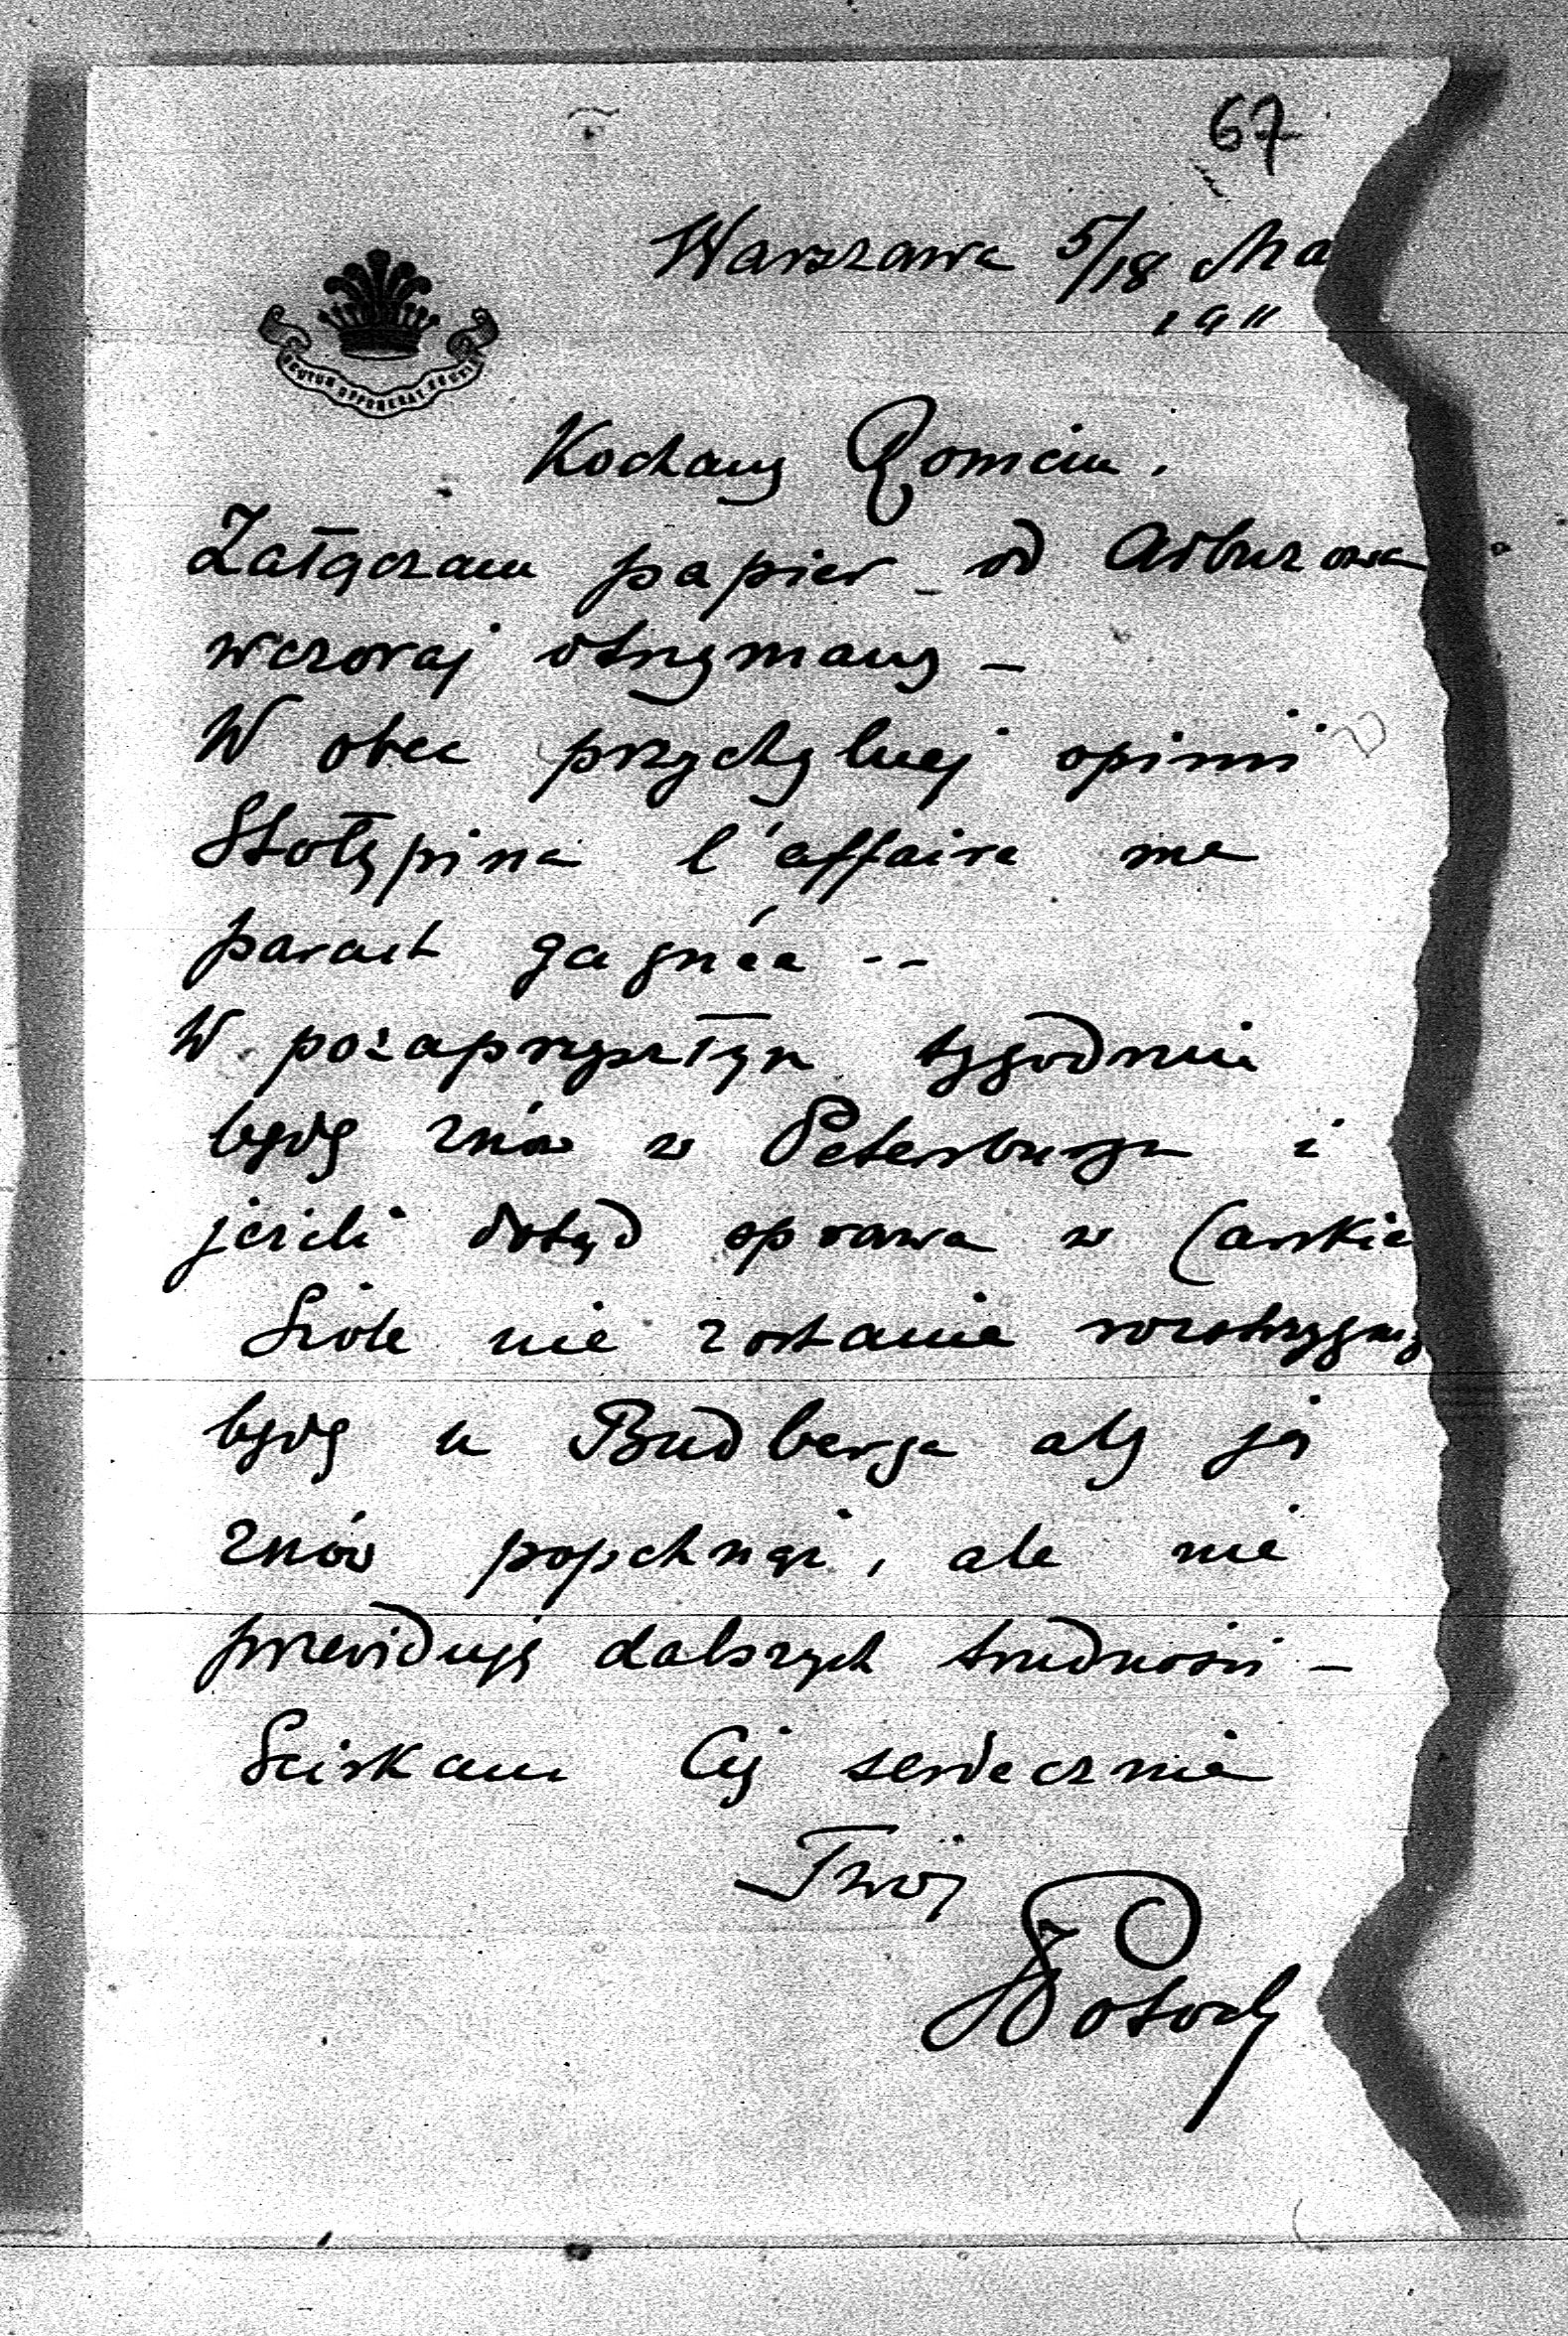 67
Warszawa 5/18 Ma
1911
SCUTUM OPPONEBAT SCUTIS
Kochany Romciu.
Załączam papier od Arbuzowa
wczoraj otrzymany –
W obec przychylnej opinii
Stołypina l'affaire me
parait gagnée --
W pozaprzyszłym tygodniu
będę znów w Petersburgu i
jeżeli dotąd sprawa w Carskie
Siole nie zostanie rozstrzygnię
będę u Budberga aby ją
znów popchnąć, ale nie
przewiduję dalszych trudności –
Sciskam Cię serdecznie
Twój
Potocki